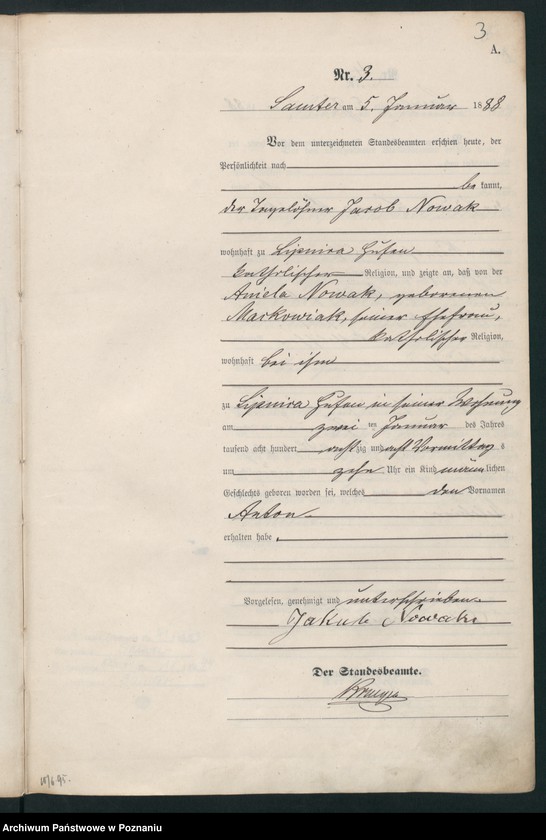 3
A.
Nr. 3.
Samter am 5. Januar 1888
Vor dem unterzeichneten Standesbeamten erschien heute, der
Persönlichkeit nach
be kannt,
der Tagelöhner Jacob Nowak
wohnhaft zu Lipnica Hufen
katholischer Religion, und zeigte an, daß von der
Aniela Nowak, geborenen
Markowiak, seiner Ehefrau,
katholischer Religion,
wohnhaft bei ihm
zu Lipnica Hufen in seiner Wohnung
am zwei ten Januar des Jahres
tausend acht hundert acht zig und acht Vormittag s
um zehn Uhr ein Kind männ lichen
Geschlechts geboren worden sei, welches den Vornamen
Anton
erhalten habe.
Vorgelesen, genehmigt und unterschrieben.
Jakub Nowak
Der Standesbeamte.
Archiwum Państwowe w Poznaniu